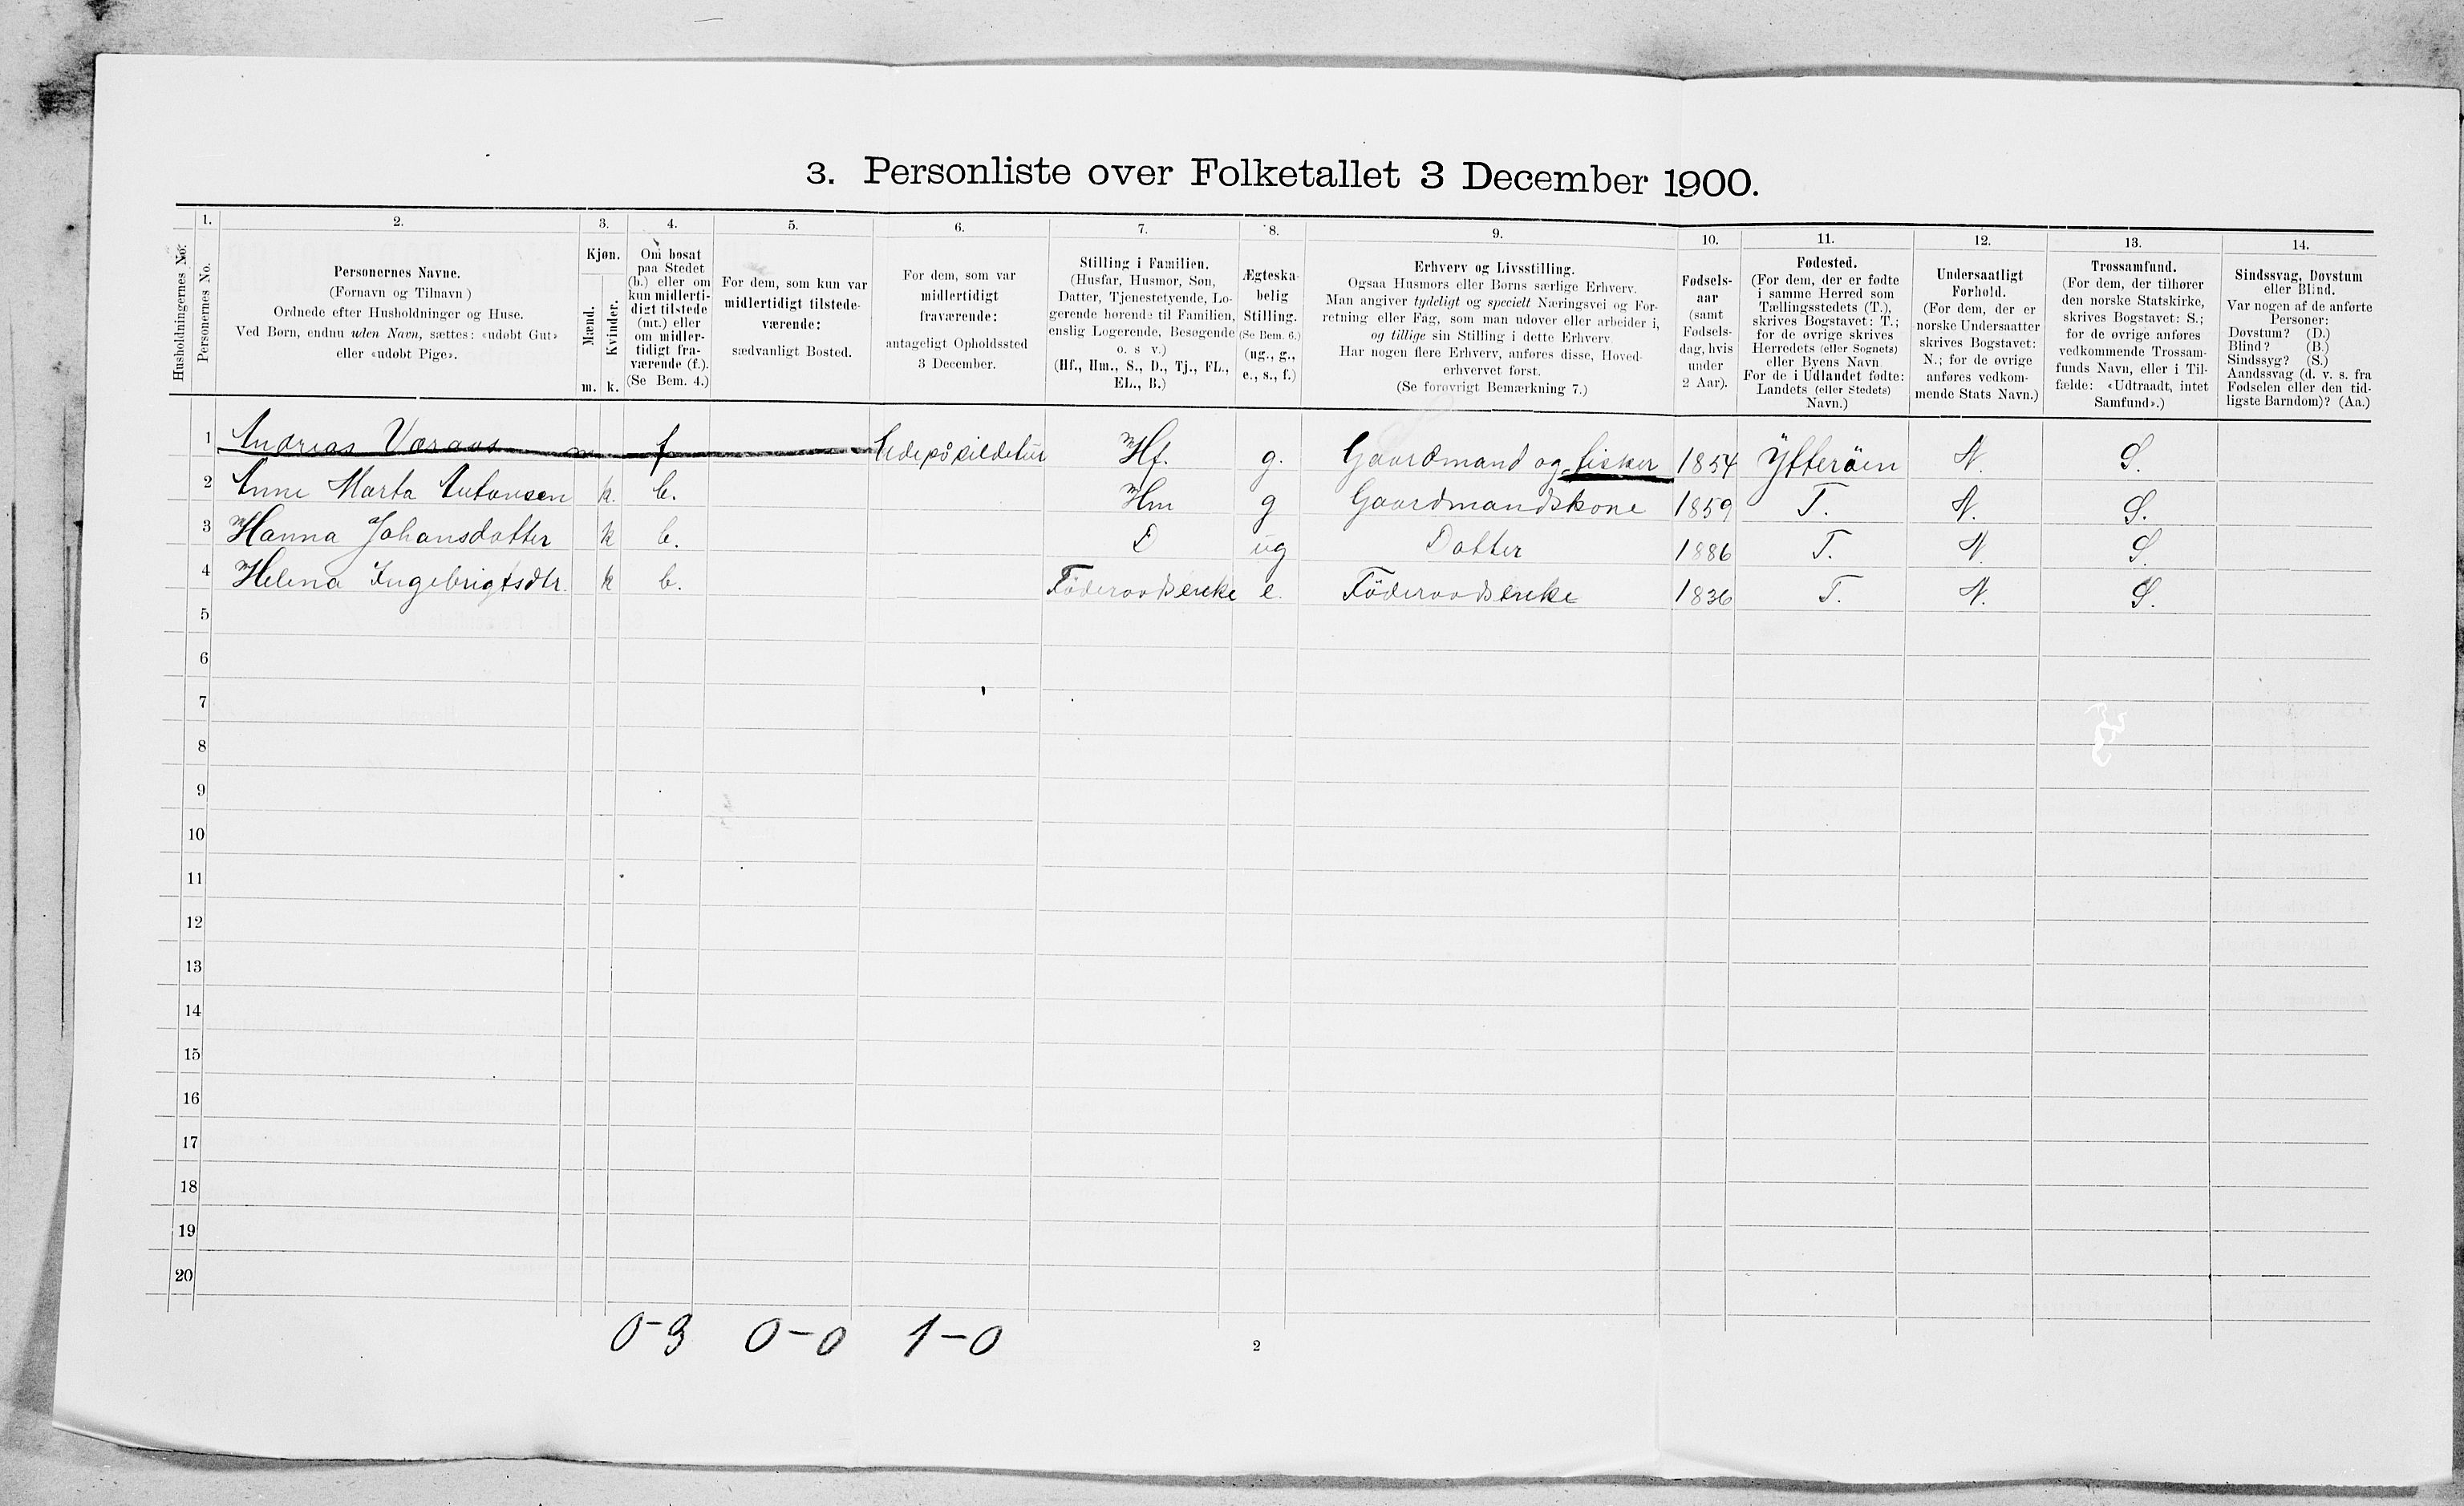 3. Personliste over Folketallet 3 December 1900.
Husholdningernes No.
1.
Personernes No.
2.
Personernes Navne.
(Fornavn og Tilnavn)
Ordnede efter Husholdninger og Huse.
Ved Børn, endnu uden Navn, sættes: «udøbt Gut»
eller «udøbt Pige».
3.
Kjøn.
Mænd.
Kvinder.
m. k.
4.
Om bosat
paa Stedet
(b.) eller om
kun midlerti-
digt tilstede
(mt.) eller
om midler-
tidigt fra-
værende (f.).
(Se Bem. 4.)
5.
For dem, som kun var
midlertidigt tilstede-
værende:
sædvanligt Bosted.
6.
For dem, som var
midlertidigt
fraværende:
antageligt Opholdssted
3 December.
7.
Stilling i Familien.
(Husfar, Husmor, Søn,
Datter, Tjenestetyende, Lo-
gerende hørende til Familien,
enslig Logerende, Besøgende
o. s v.)
(Hf., Hm., S., D., Tj., FL.,
EL., B.)
8.
Ægteska-
belig
Stilling.
(Se Bem. 6.)
(ug., g.,
e., s., f.)
9.
Erhverv og Livsstilling.
Ogsaa Husmors eller Børns særlige Erhverv.
Man angiver tydeligt og specielt Næringsvei og For-
retning eller Fag, som man udøver eller arbeider i,
og tillige sin Stilling i dette Erhverv.
Har nogen flere Erhverv, anføres disse, Hoved-
erhvervet først.
(Se forøvrigt Bemærkning 7.)
10.
Fødsels-
aar
(samt
Fødsels-
dag, hvis
under
2 Aar).
11.
Fødested.
(For dem, der er fødte
i samme Herred som
Tællingsstedets (T.),
skrives Bogstavet: T.;
for de øvrige skrives
Herredets (eller Sognets)
eller Byens Navn.
For de i Udlandet fødte:
Landets (eller Stedets)
Navn.)
12.
Undersaatligt
Forhold.
(For dem, der er
norske Undersaatter
skrives Bogstavet:
N.; for de øvrige
anføres vedkom-
mende Stats Navn.)
13.
Trossamfund.
(For dem, der tilhører
den norske Statskirke,
skrives Bogstavet: S.;
for de øvrige anføres
vedkommende Trossam-
funds Navn, eller i Til-
fælde: «Udtraadt, intet
Samfund».)
14.
Sindssvag, Døvstum
eller Blind.
Var nogen af de anførte
Personer:
Døvstum? (D.)
Blind? (B.)
Sindssyg? (S.)
Aandssvag (d. v. s. fra
Fødselen eller den tid-
ligste Barndom)? (Aa.)
1 Andrias m f Hf. g. Gaardmand og fisker 1854 Ytterøen N. S.
2 Anne Marta Antonsen k. b. Hm g Gaardmandskone 1859 T. N. S.
3 Hanna Johansdatter k b. D ug Datter 1886 T. N. S.
4 Helena Ingebrigtsdtr. k b. Föderaadsenke e. Föderaadsenke 1836 T. N. S.
5
6
7
8
9
10
11
12
13
14
15
16
17
18
19
20
0-3 0-0 1-0
2